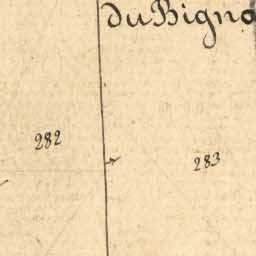 du Bigno
282
283